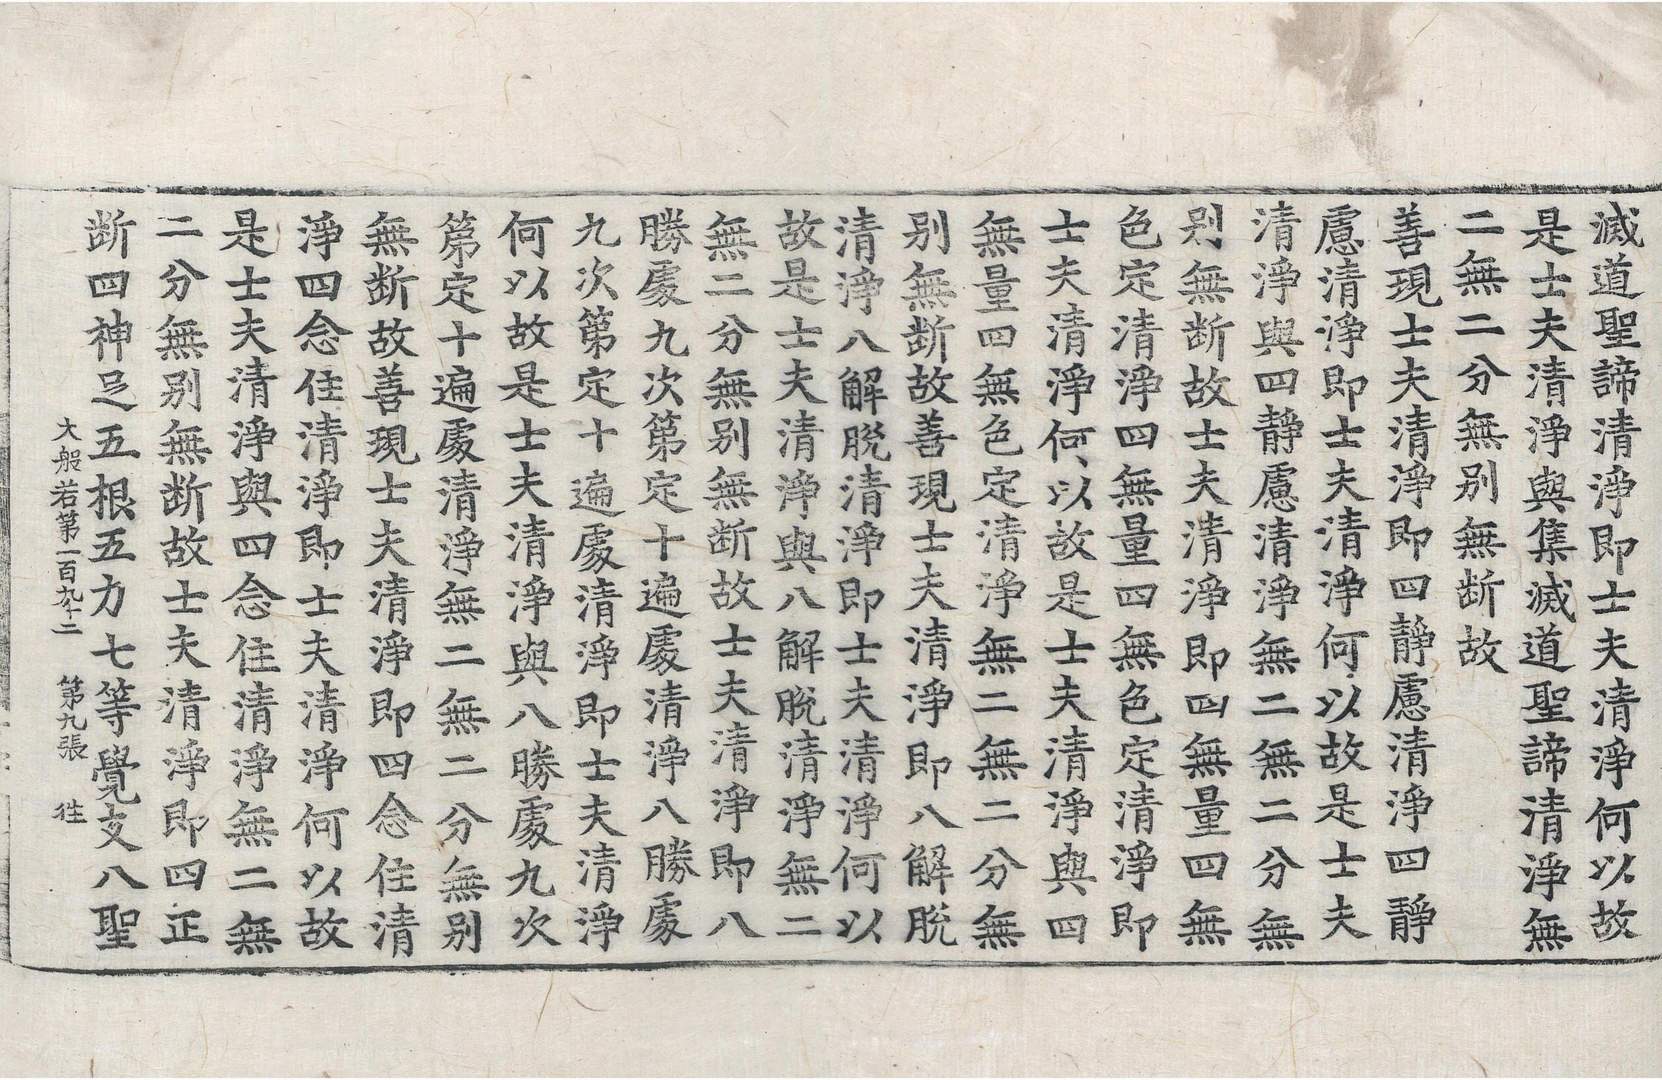 滅道聖諦清淨即士夫清淨何以故
是士夫清淨與集滅道聖諦清淨無
二無二分無别無断故
善現士夫清淨即四靜慮清淨四靜
慮清淨即士夫清淨何以故是士夫
清淨與四靜慮清淨無二無二分無
别無断故士夫清淨即四無量四無
色定清淨四無量四無色定清淨即
士夫清淨何以故是士夫清淨與四
無量四無色定清淨無二無二分無
别無断故善現士夫清淨即八解脫
清淨八解脫清淨即士夫清淨何以
故是士夫清淨與八解脫清淨無二
無二分無别無断故士夫清淨即八
勝處九次第定十遍處清淨八勝處
九次第定十遍處清淨即士夫清淨
何以故是士夫清淨與八勝處九次
第定十遍處清淨無二無二分無别
無断故善現士夫清淨即四念住清
淨四念住清淨即士夫清淨何以故
是士夫清淨與四念住清淨無二無
二分無别無断故士夫清淨即四正
断四神足五根五力七等覺支八聖
大般若第一百九十二 第九張 徃